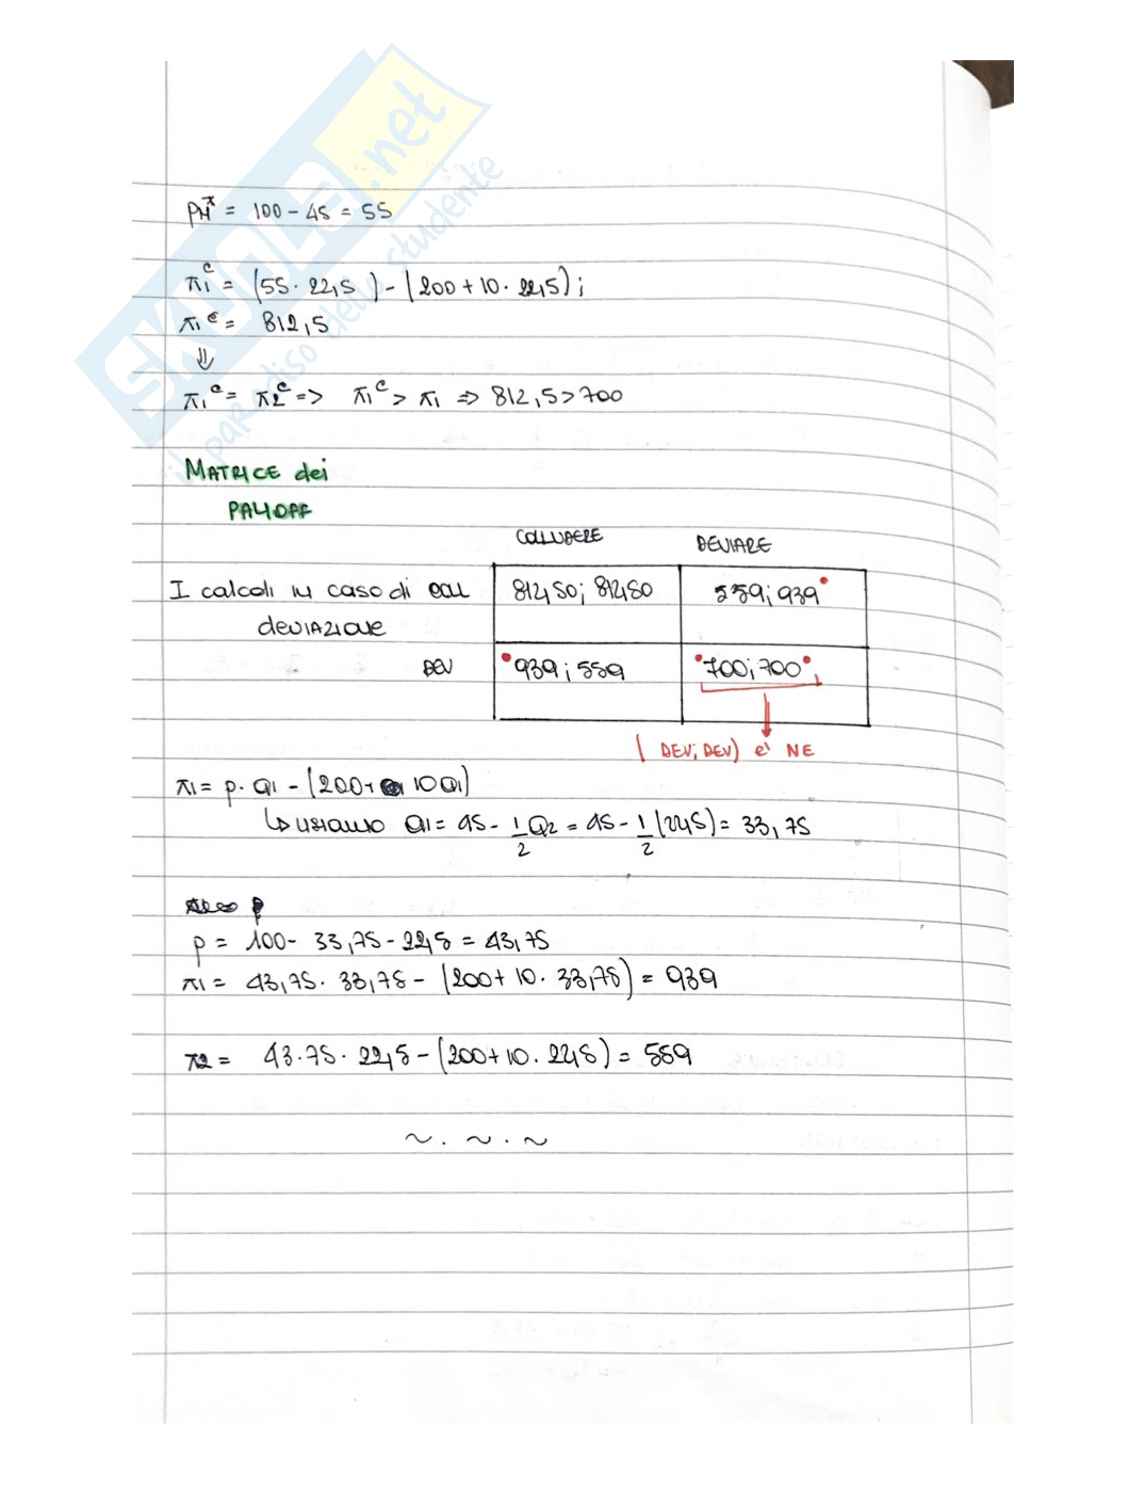 SKUOLA.net
il paradiso dello studente
PM* = 100 - 45 = 55
π1^c = (55 · 22,5) - (200 + 10 · 22,5);
π1^c = 812,5
⇓
π1^c = π2^c => π1^c > π1 => 812,5 > 700
MATRICE dei
PAYOFF
COLLUDERE DEVIARE
I calcoli in caso di COLL 812,50; 812,50 559; 939
deviazione
DEV 939; 559 700; 700
(DEV; DEV) e' NE
π1 = p · Q1 - (200 + 10Q1)
↳ usiamo Q1 = 45 - 1/2 Q2 = 45 - 1/2 (22,5) = 33,75
p = 100 - 33,75 - 22,5 = 43,75
π1 = 43,75 · 33,75 - (200 + 10 · 33,75) = 939
π2 = 43.75 · 22,5 - (200 + 10 . 22,5) = 559
~ . ~ . ~